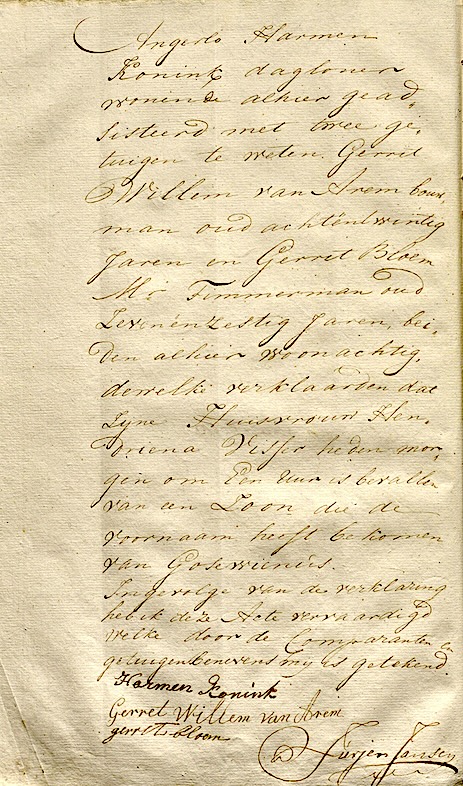 Angerlo Harmen
Konink dagloner
wonende alhier gead„
sisteerd met twee ge„
tuigen te weten Gerrit
Willem van Arem bouw„
man oud achtentwintig
Jaren en Gerrit Bloem
Mr. Timmerman oud
Zevenenzestig Jaren, bei„
den alhier woonachtig,
dewelke verklaarden dat
Zyne Huisvrouw Hen„
driena Visser heden mor„
gen om Een Uur is bevallen
van een Zoon die de
voornaam heeft bekomen
van Gosewienus.
Ingevolge van de verklaring
heb ik deze Acte vervaardigd
welke door de Comparanten en
getuigen benevens my is getekend.
Harmen Konink
Gerret Willem van Arem
gerrit bloem
Jurjen Jansen